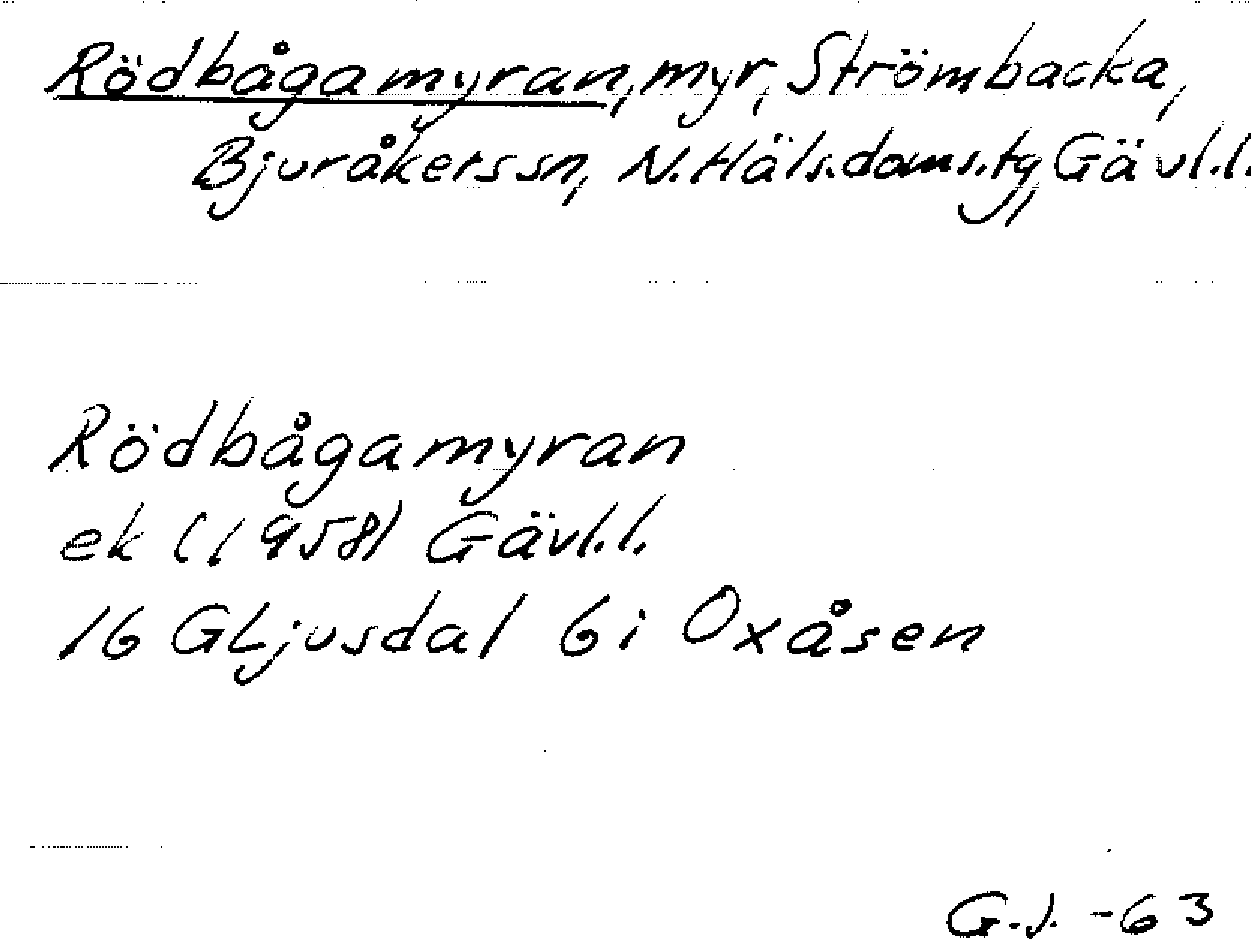 Rödbågamyran, myr, Strömbacka,
Bjuråkers sn, N. Häls. doms.tg, Gävl.l.
Rödbågamyran
ek (1958) Gävl.l.
16 G Ljusdal 6 i Oxåsen
G.J. -63